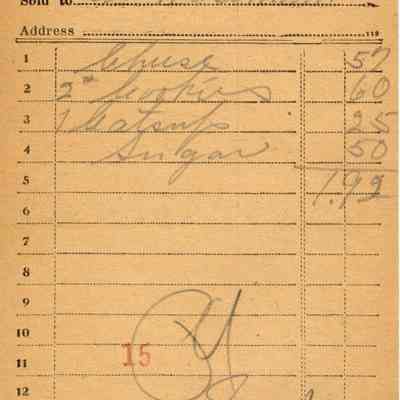 Sold to
Address 119
1 Cheese 57
2 2 Cookies 60
3 1 Catsup 25
4 Sugar 50
5 1.92
6
7
8
9
10
15
11
12